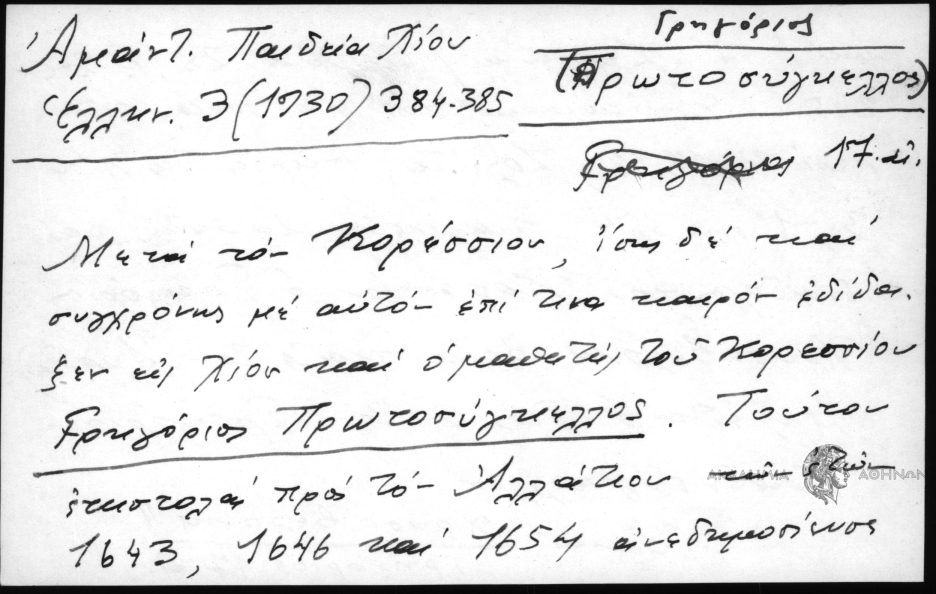 Ἀμάντ. Παιδεία Χίου
Ἑλλην. 3 (1930) 384-385
Γρηγόριος
(Πρωτοσύγκελλος)
Γρηγόριος 17 αἰ.
Μετὰ τὸν Κορέσσιον, ἴσως δὲ καὶ
συγχρόνως μὲ αὐτὸν ἐπί τινα καιρὸν ἐδίδα-
ξεν εἰς Χίον καὶ ὁ μαθητὴς τοῦ Κορεσσίου
Γρηγόριος Πρωτοσύγκελλος. Τούτου
ἐπιστολαὶ πρὸς τὸν Ἀλλάτιον τῶν ἐτῶν
ΑΚΑΔΗΜΙΑ ΑΘΗΝΩΝ
1643, 1646 καὶ 1654 ἀνεδημοσίευσε